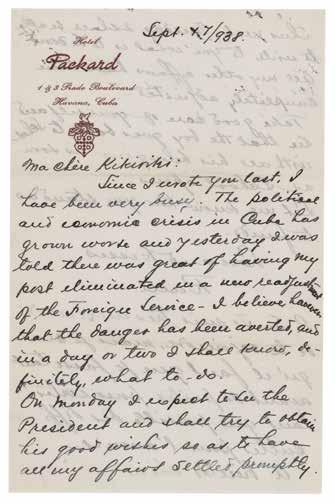 Sept. 17/938.
Hotel
Packard
1 & 3 Prado Boulevard
Havana, Cuba
Ma Chère Kikiriki:
Since I wrote you last, I
have been very busy. The political
and economic crisis in Cuba has
grown worse and yesterday I was
told there was great of having my
post eliminated in a new readjustment
of the Foreign Service - I believe however
that the danger has been averted, and
in a day or two I shall know, de-
finitely, what to do.
On Monday I expect to see the
President and shall try to obtain
his good wishes so as to have
all my affairs settled promptly.